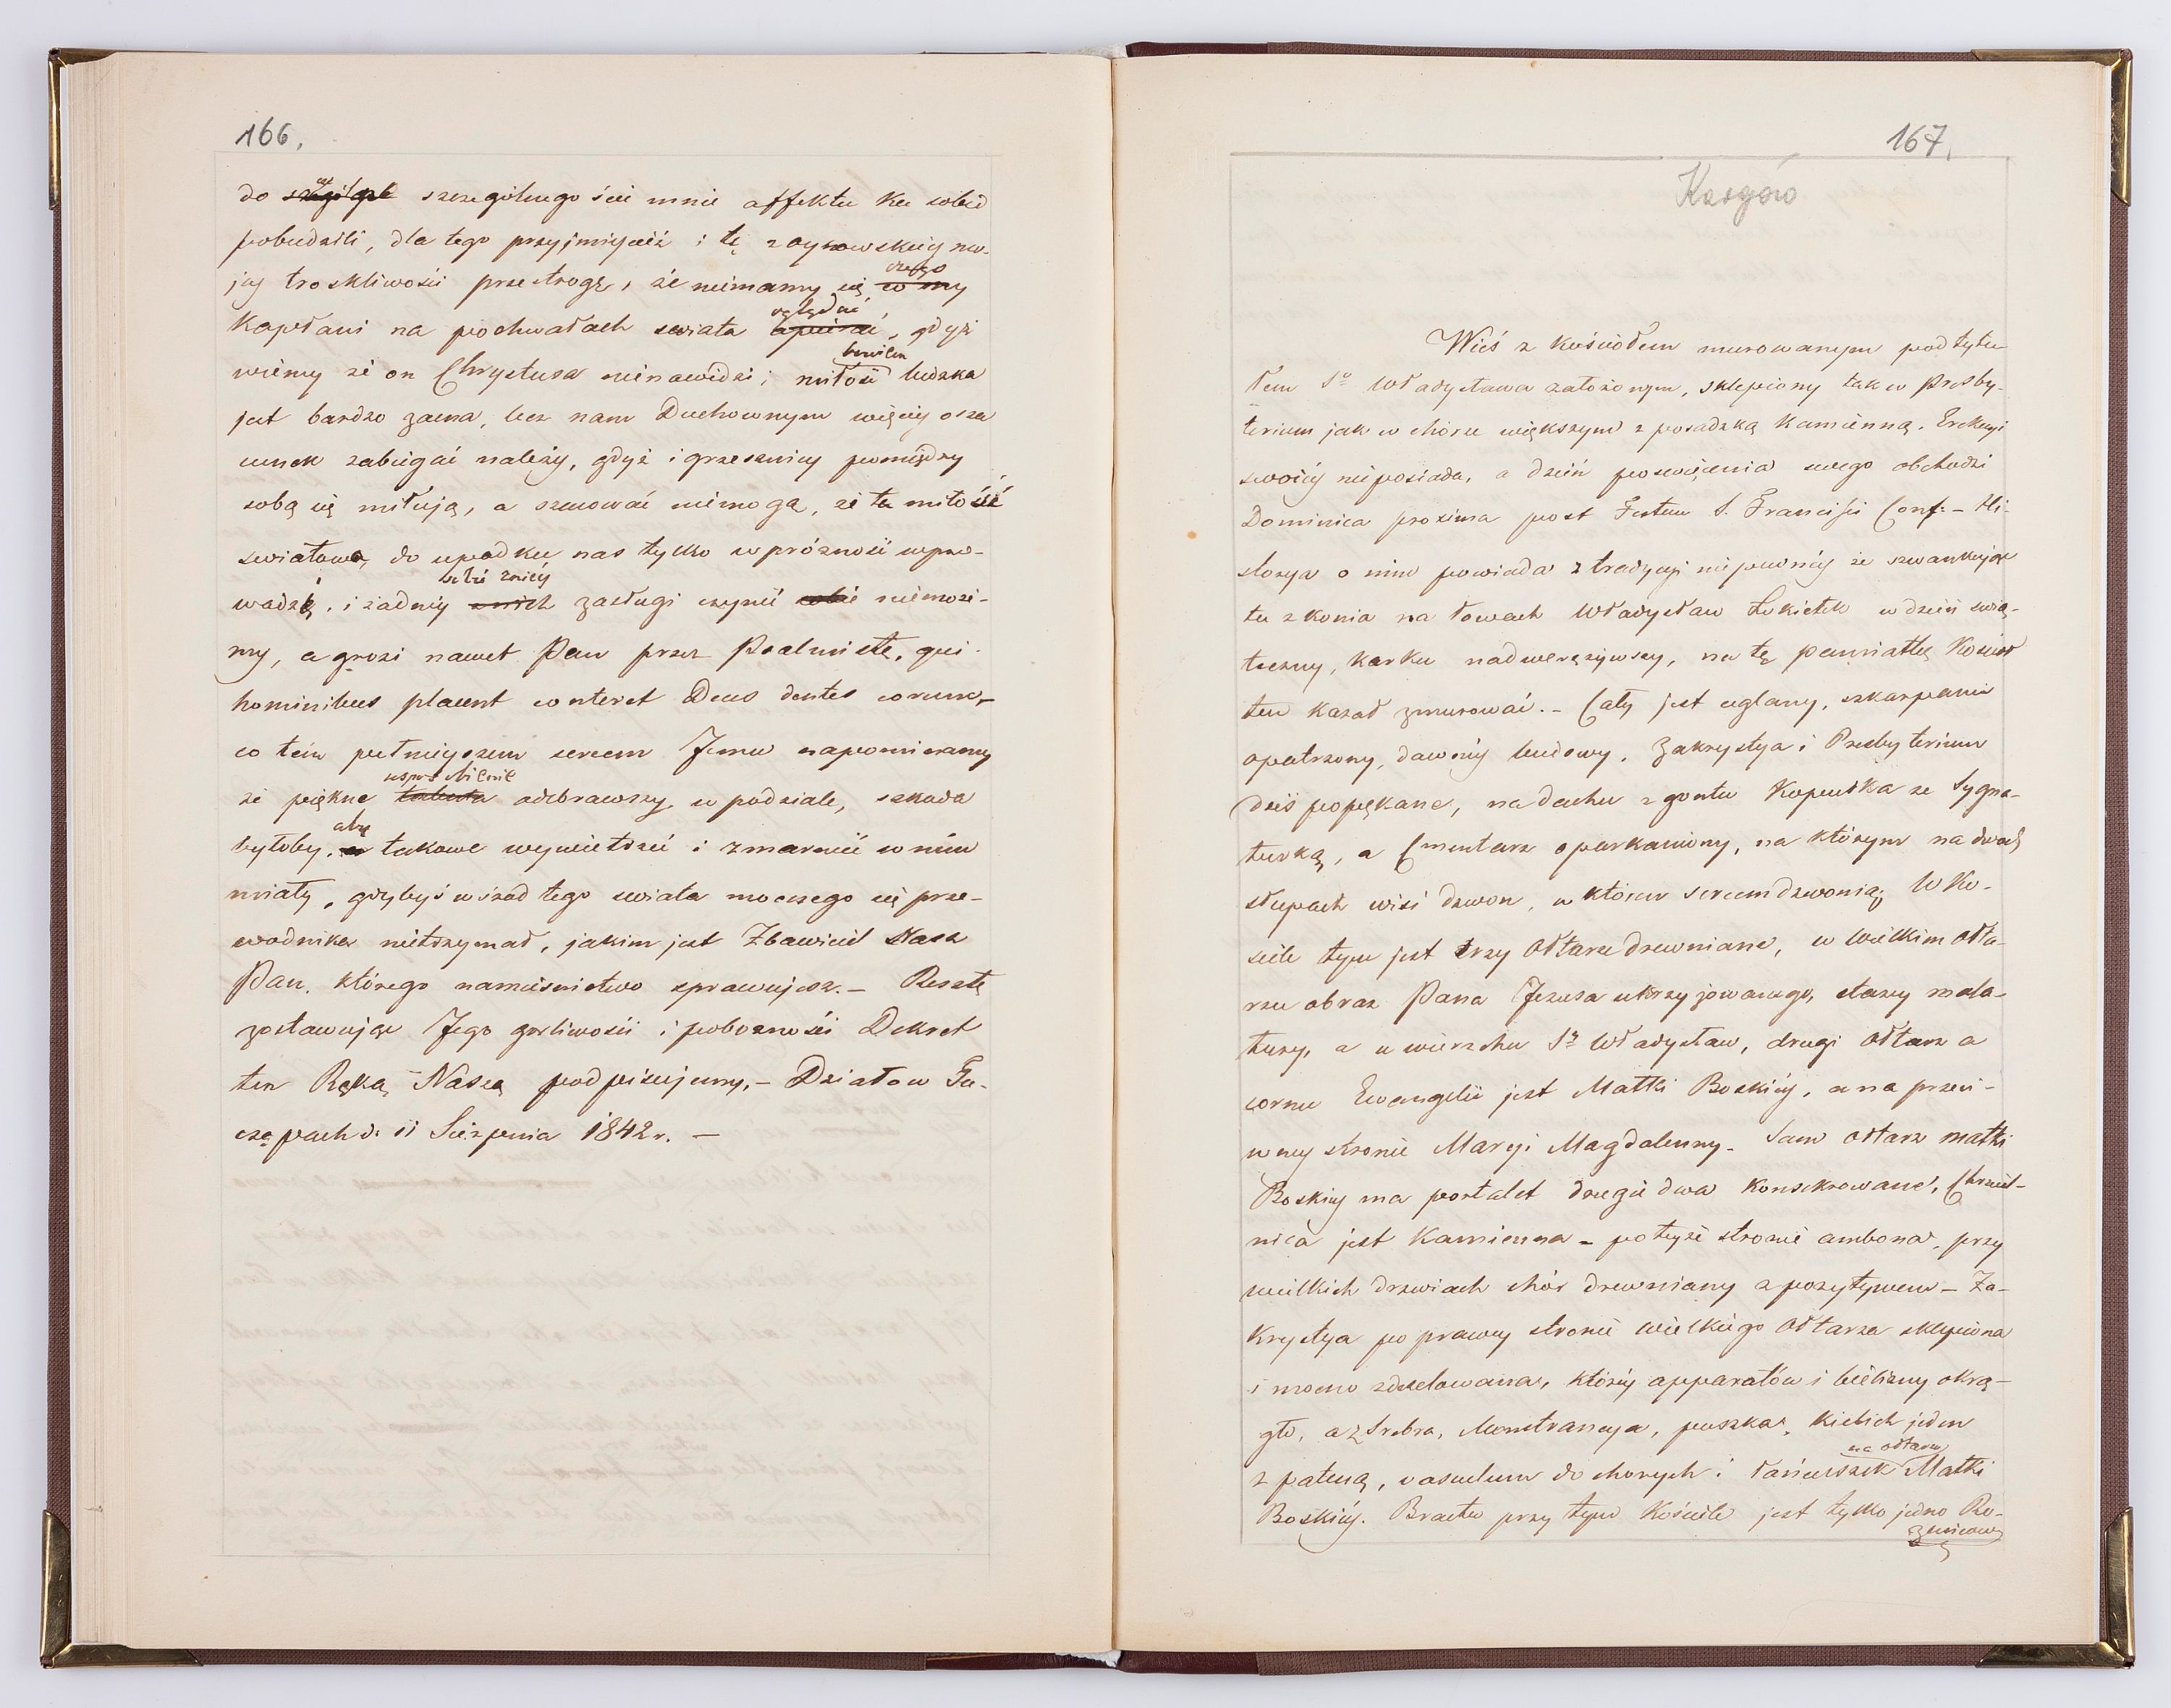 166.
do szczególnego ści mnie affektu ku sobie
pobudzili, dla tego przyjmijcież i tę z oycowskiéy mo-
jej troskliwości przestrogę, że niemamy się czego my
Kapłani na pochwałach swiata oglądać, gdyż
wiemy że on Chrystusa nienawidzi; miłość bowiem ludzka
jest bardzo zacna, lecz nam Duchownym więcéy o sza
cunek zabiegać należy, gdyż i grzesznicy pomiędzy
sobą się miłują, a szanować niemogą, że ta miłość
swiatowa do upadku nas tylko w próżność wpro-
wadzi, i żadnéy będź z niéy zasługi czynić niemoże-
my, a grozi nawet Pan przez Psalmistę, qui
hominibus placent conteret Deus dentes eorum,
co tém pełniejszem sercem Jemu napominamy
że piękne usposobienie odebrawszy w podziale, szkoda
byłoby, aby takowe wywietrzéć i zmarnieć w nim
miały, gdybyś wśród tego swiata mocnego się prze-
wodnika nietrzymał, jakim jest Zbawiciel Nasz
Pan, którego namiesnictwo sprawujesz. – Resztę
zostawując Jego gorliwości i pobożności Dekret
ten Ręką Naszą podpisujemy. – Działo w Gu-
czępach d. 11 Sierpnia 1842 r. –
167.
Kargów
Wieś z kościołem murowanym pod tytu-
łem Sgo Władysława założonym, sklepiony tak w Presby-
terium jak w chórze większym z posadzką Kamienną. Erekcyi
swoiéy nieposiada, a dzień poswięcenia swego obchodzi
Dominica proxima post Festum S. Francisci Conf. – Hi-
storya o nim powiada z tradycyi niepewnéy że szwankując
tu z konia na łowach Władysław Łokietek w dzień swią-
teczny, karku nadwerężywszy, na tę pamiatkę Kościoł
ten kazał zmurować. – Cały jest ceglany, szkarpami
opatrzony, dawnéy budowy, Zakrystya i Presbyterium
dziś popękane, na dachu z gontu Kopułka ze Sygna-
turką, a Cmentarz oparkaniony, na którym na dwóch
słupach wisi dzwon, w którem sercem dzwonią. W Ko-
sciele tym jest trzy Ołtarze drewniane, w Wielkim Ołta-
rzu obraz Pana Jezusa ukrzyżowanego, starey mala-
tury, a u wierzchu Sty Władysław, drugi Ołtarz a
cornu Evangelii jest Matki Boskiéy, a na przeci-
wney stronie Maryi Magdalenny. Sam Ołtarz Matki
Boskiey ma portalet drugie dwa Konsekrowane, Chrzciel-
nica jest Kamienna – po teyże stronie ambona, przy
wielkich drzwiach chór drewniany z pozytywem – Za-
krystya po prawey stronie wielkiego Ołtarza sklepiona
i mocno zdezelowana, któréy apparatów i bielizny okrą-
gło, a z Srebra, Monstrancya, puszka, Kielich jeden
z pateną, vasculum do chorych i łańcuszek na ołtarzu Matki
Boskiéy. Bractw przy tym Kościele jest tylko jedno Ro-
żańcowe